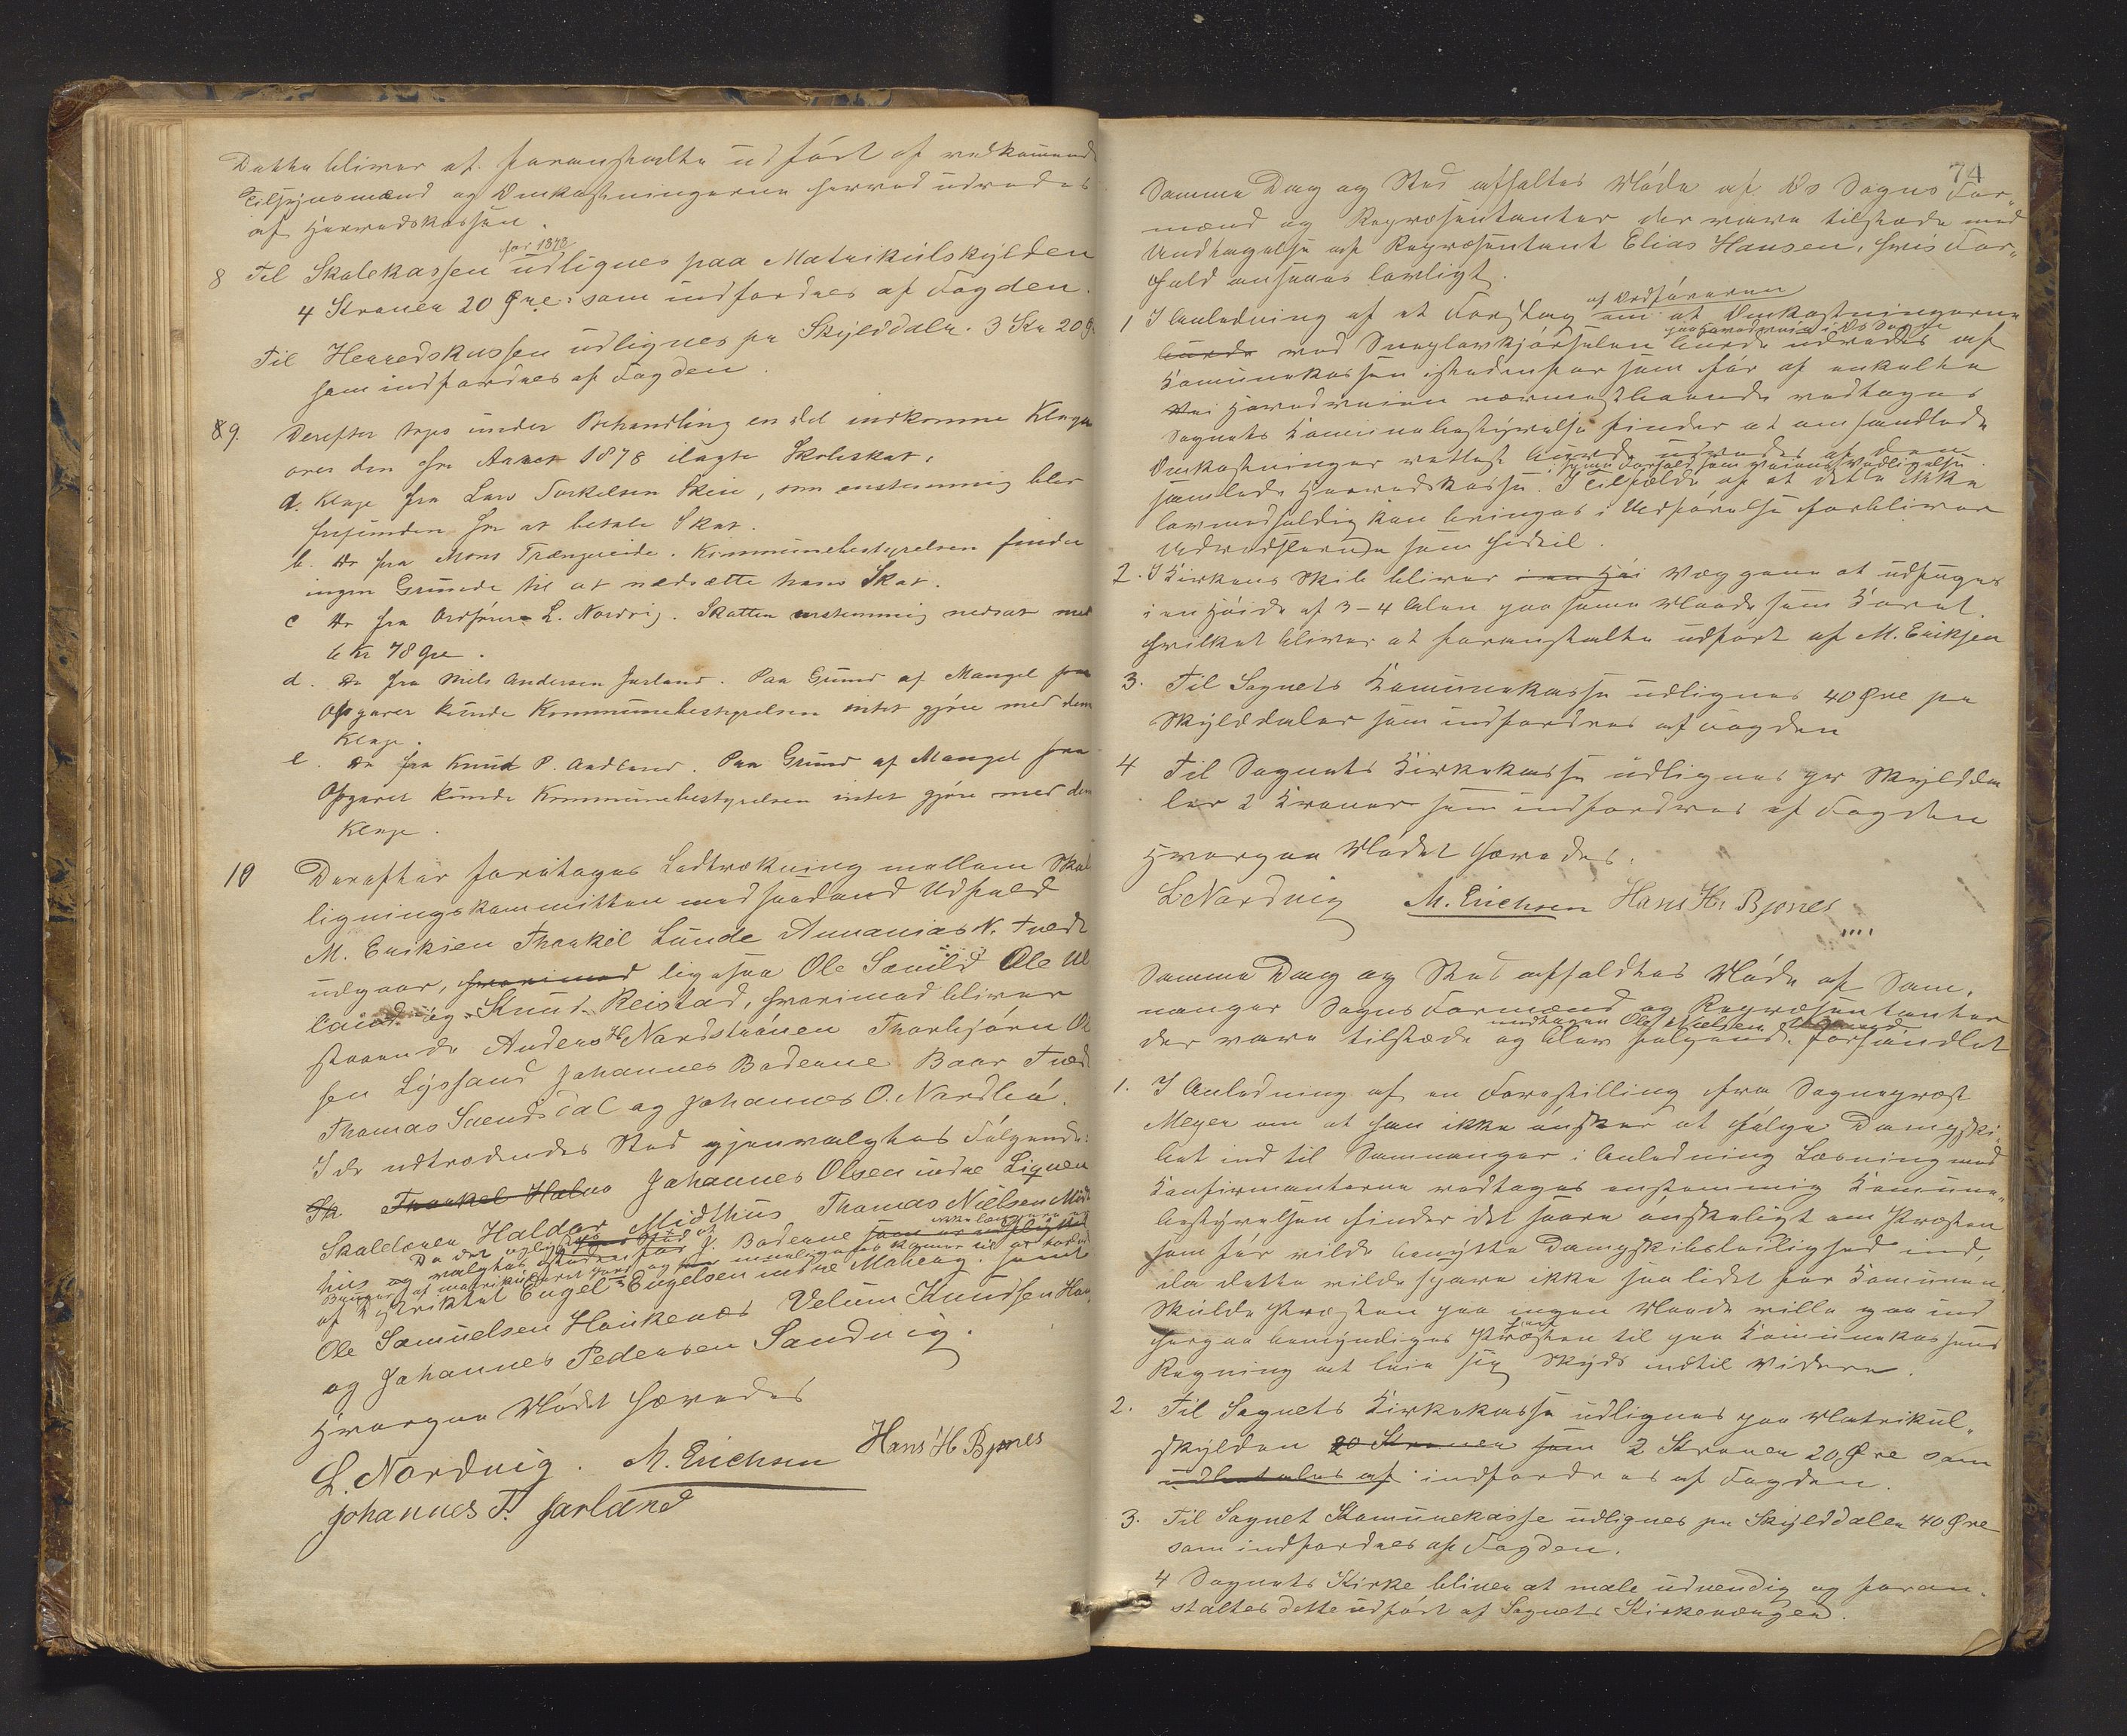 Dette bliver at foranstalte udført af vedkommende
Tilsynsmænd og Omkostningerne herved udredes
af Herredskassen.
8 Til Skolekassen for 1878 udlignes paa Matrikulskylden
4 Kroner 20 Øre som indfordres af Fogden.
Til Herredskassen udlignes pr Skylddaler 3 Kr 20 Ø
som indfordres af Fogden.
9. Derefter toges under Behandling en del indkomne Klager
over den for Aaret 1878 ilagte Skoleskat.
a. Klage fra Lars Torkelsen Skeie, som enstemmig blev
frifunden for at betale Skat.
b. Do fra Mons Trængereide. Kommunebestyrelsen finder
ingen Grunde til at nedsætte hans Skat.
c Do fra Ordfører L. Nordvig. Skatten enstemmig nedsat med
6 Kr 78 Øre.
d. Do fra Nils Andersen Jarland. Paa Grund af Mangel paa
Opgaver kunde Kommunebestyrelsen intet gjøre med denne
Klage.
e. Do fra Knud P. Aadland. Paa Grund af Mangel paa
Opgaver kunde Kommunebestyrelsen intet gjøre med denne
Klage.
10 Derefter foretages Lodtrækning mellem Skat
ligningskommitten med saadand Udfald
M. Eriksen Thorkil Lunde Annanias N. Tvedt
udgaar, hvorimod ligesaa Ole Sævild Ole
land og Knud Reistad, hvorimod bliver
staaende Anders H. Nordstrønen Thorbjørn
sen Lyssand Johannes Baderne Baar Tved
Thomas Svendsdal og Johannes O. Nordbø.
I de udtrædendes Sted gjenvalgtes Følgende:
Th Thorkel Halno Johannes Olsen indre Ligven
Skolelærer Haldor Midthus Thomas Nielsen Midt
hus og valgtes istedenfor J. Baderne som er
af Distriktet Engel Engelsen indre Moberg. samt
Ole Samuelsen Haukenæs Velum Knudsen Hau
og Johannes Pedersen Sandvig.
Hvorpaa Mødet hævedes
L. Nordvig. M. Erichsen Hans H Bjønes
Johannes T. Jarland
74
Samme Dag og Sted afholtes Møde af Os Sogns For„
mænd og Repræsentanter der vare tilstæde med
Undtagelse af Repræsentant Elias Hansen, hvis For„
fald ansaaes lovligt.
1 I Anledning af et Forslag af Ordføreren om at Omkostningerne
burde ved Sneplovkjørselen paa Hovedveien i Os Sogn burde udredes af
Kommunekassen istedenfor som før af enkelte
Vei Hovedveien nærmestboende vedtages
Sognets Kommunebestyrelse finder at omhandlede
Omkostninger rettest burde udredes af den
samlede Herredskasse i samme Forhold som Veiens Vedligeholdelse. I Tilfælde af at dette ikke
lovmedholdig kan bringes i Udførelse forbliver
Udredselerne som hidtil.
2. I Kirkens Skib bliver i en Høi Væggene at udhugges
i en Høide af 3-4 Alen paa samme Maade som Koret.
hvilket bliver at foranstalte udført af M. Eriksen
3. Til Sognets Kommunekasse udlignes 40 Øre pr
Skylddaler som indfordres af Fogden
4 Til Sognets Kirkekasse udlignes pr Skyldda
ler 2 Kroner som indfordres af Fogden
Hvorpaa Mødet hævedes.
L Nordvig M. Erichsen Hans H. Bjønes
Samme Dag og Sted afholdtes Møde af Sam„
nanger Sogns Formænd og Repræsentanter
der vare tilstæde undtagen Ole Nielsen og blev følgende forhandlet
1. I Anledning af en Forestilling fra Sogneprest
Meyer om at han ikke ønsker at følge Dampski„
bet ind til Samnanger i Anledning Læsning med
Konfirmanterne vedtages enstemmig Kommune„
bestyrelsen finder det saare ønskeligt om Præsten
som før vilde benytte Dampskibsleilighed ind,
da dette vilde spare ikke saa lidet for Kommunen
Skulde Præsten paa ingen Maade ville gaa ind
herpaa bemyndiges Præsten til paa Kommunekassens
Regning at leie sig Skyds indtil Videre.
2. Til Sognets Kirkekasse udlignes paa Matrikul„
skylden 20 Kroner som 2 Kroner 20 Øre som
udbetales af indfordres af Fogden.
3. Til Sognet Komunekasse udlignes pr Skylddaler 40 Øre
som indfordres af Fogden.
4 Sognets Kirke bliver at male udvendig og foran„
staltes dette udført af Sognets Kirkeværger.